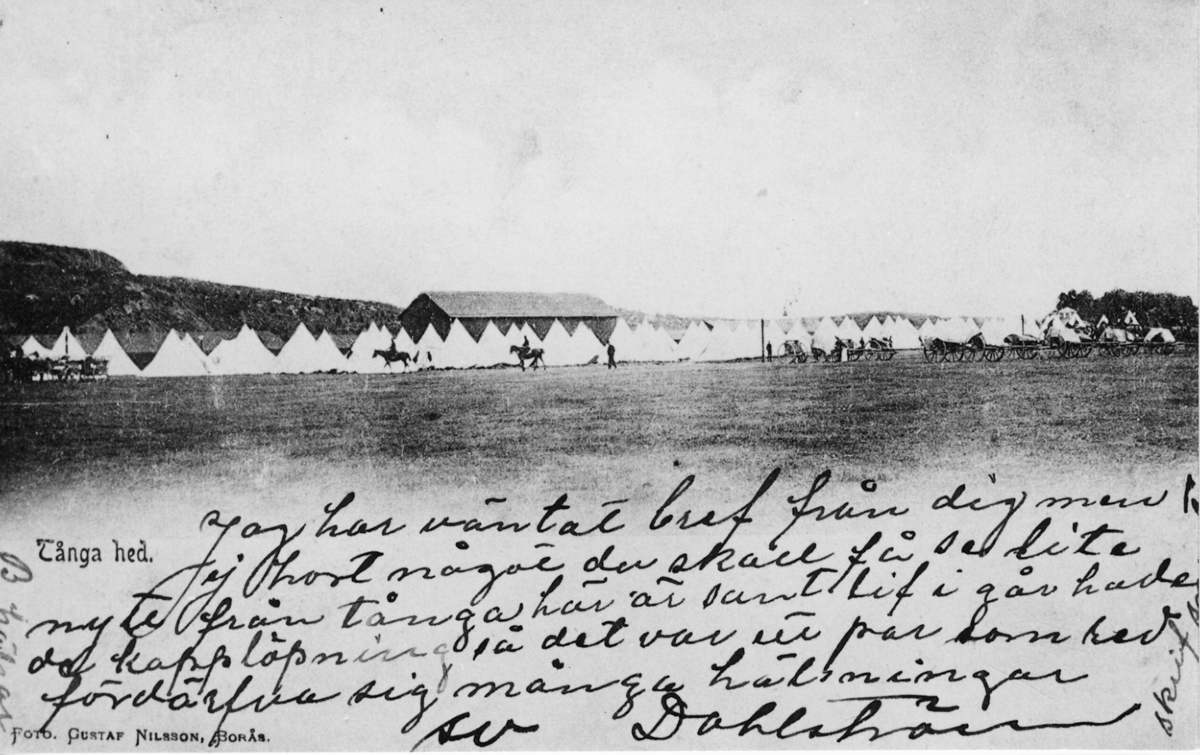 Jag har väntat bref från dig men
Tånga hed.
ej hort något du skall få se lite
nytt från tånga här är sant lif i går hade
de kapplöpning så det var ett par som red
fördärfva sig många hälsningar
Dahlström
Foto. Gustaf Nilsson, Borås.
skrif